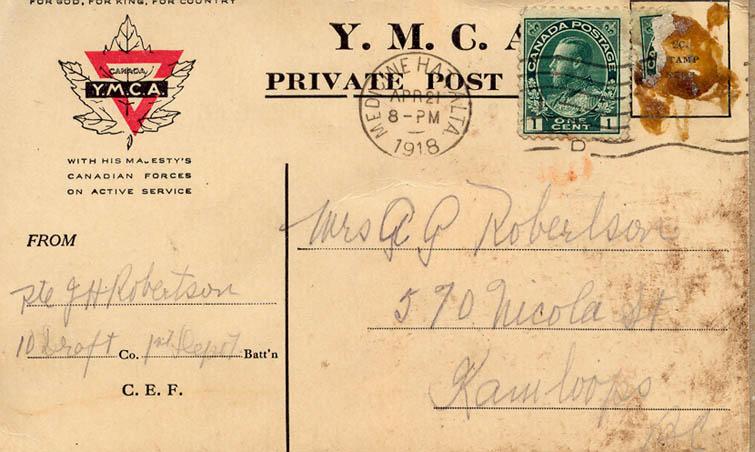 FOR GOD, FOR KING, FOR COUNTRY
Y. M. C. A
PRIVATE POST
CANADA
Y.M.C.A.
WITH HIS MAJESTY'S
CANADIAN FORCES
ON ACTIVE SERVICE
MEDICINE HAT ALTA
APR 21
8-PM
1918
CANADA POSTAGE
1 ONE CENT 1
2C.
STAMP
HERE
D
FROM
Pte J H Robertson
10 Draft Co. 1st Depot Batt'n
C. E. F.
Mrs G G Robertson
570 Nicola St
Kamloops
B C